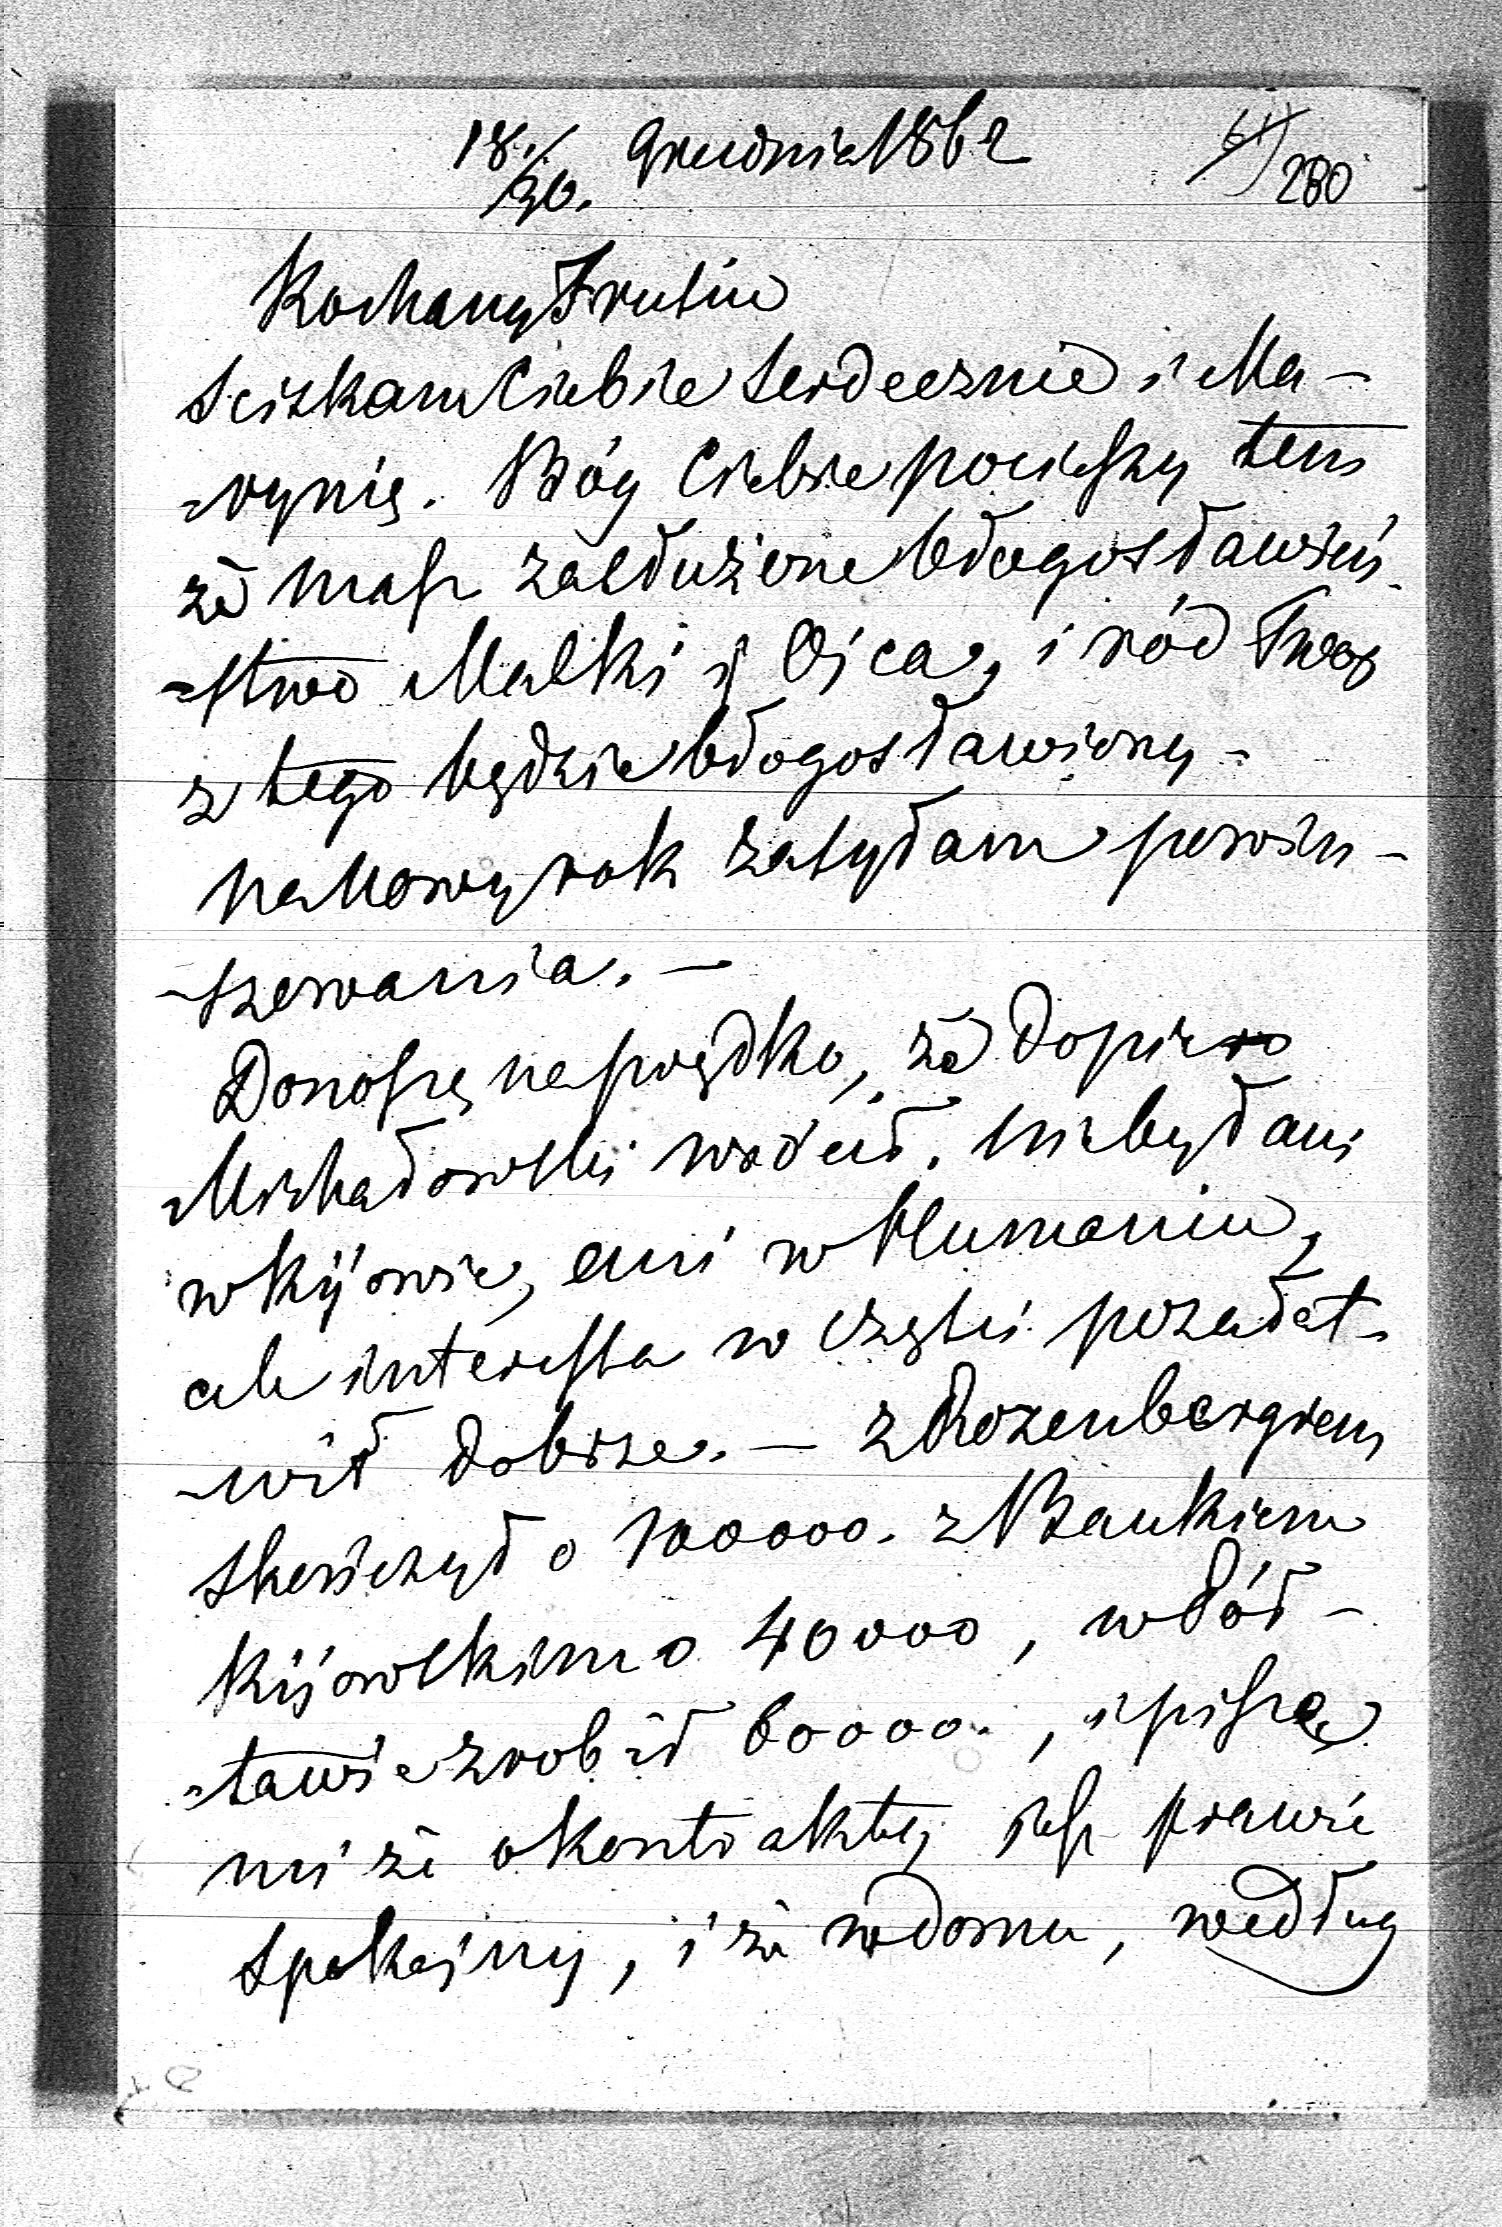 18./30. Grudnia 1862
61/280
Kochany
Sciskam Ciebie serdecznie i Ma-
-rynię. Bóg Ciebie pocieszy tem
że masz zasłużone błogosławień-
-stwo Matki i Ojca, i ród Twoy
z tego będzie błogosławiony-
na Nowy rok zasyłam powin-
-szowania. -
Donoszę naprędko, że dopiero
Michałowski wrócił. Niebył ani
w Kijowie, ani w Humaniu,
ale interessa w części pozałat-
-wił dobrze. - z Rozenbergiem
skończył o 100000. z Bankiem
Kijowskim o 40000, w Tół-
-tawie zrobił 60000., i piszę
mi że o kontrakty jest prawie
spokojny, i że w domu, według